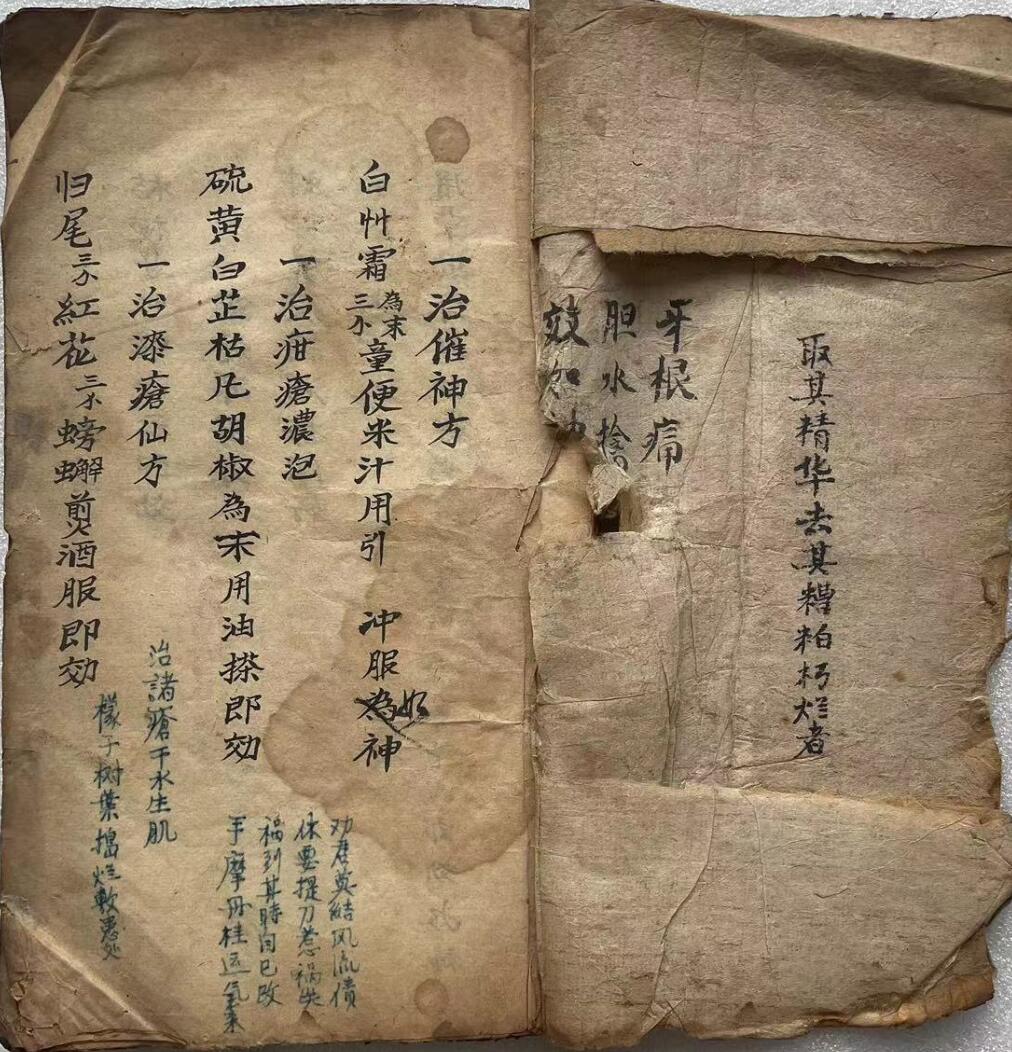 取其精华去其糟粕朽烂者
牙根痛
胆水搶
效如神
一治催神方
白艸霜三个為末童便米汁用引 冲服為如神
一治疳瘡濃泡
硫黄白芷枯凡胡椒為末用油搽即効
一治漆瘡仙方
归尾三个紅花三个螃蠏煎酒服即効
劝君莫結风流債
休要提刀惹禍失
禍到其時自己改
手摩丹桂运氣来
治諸瘡干水生肌
樣子树葉搗烂敷患处